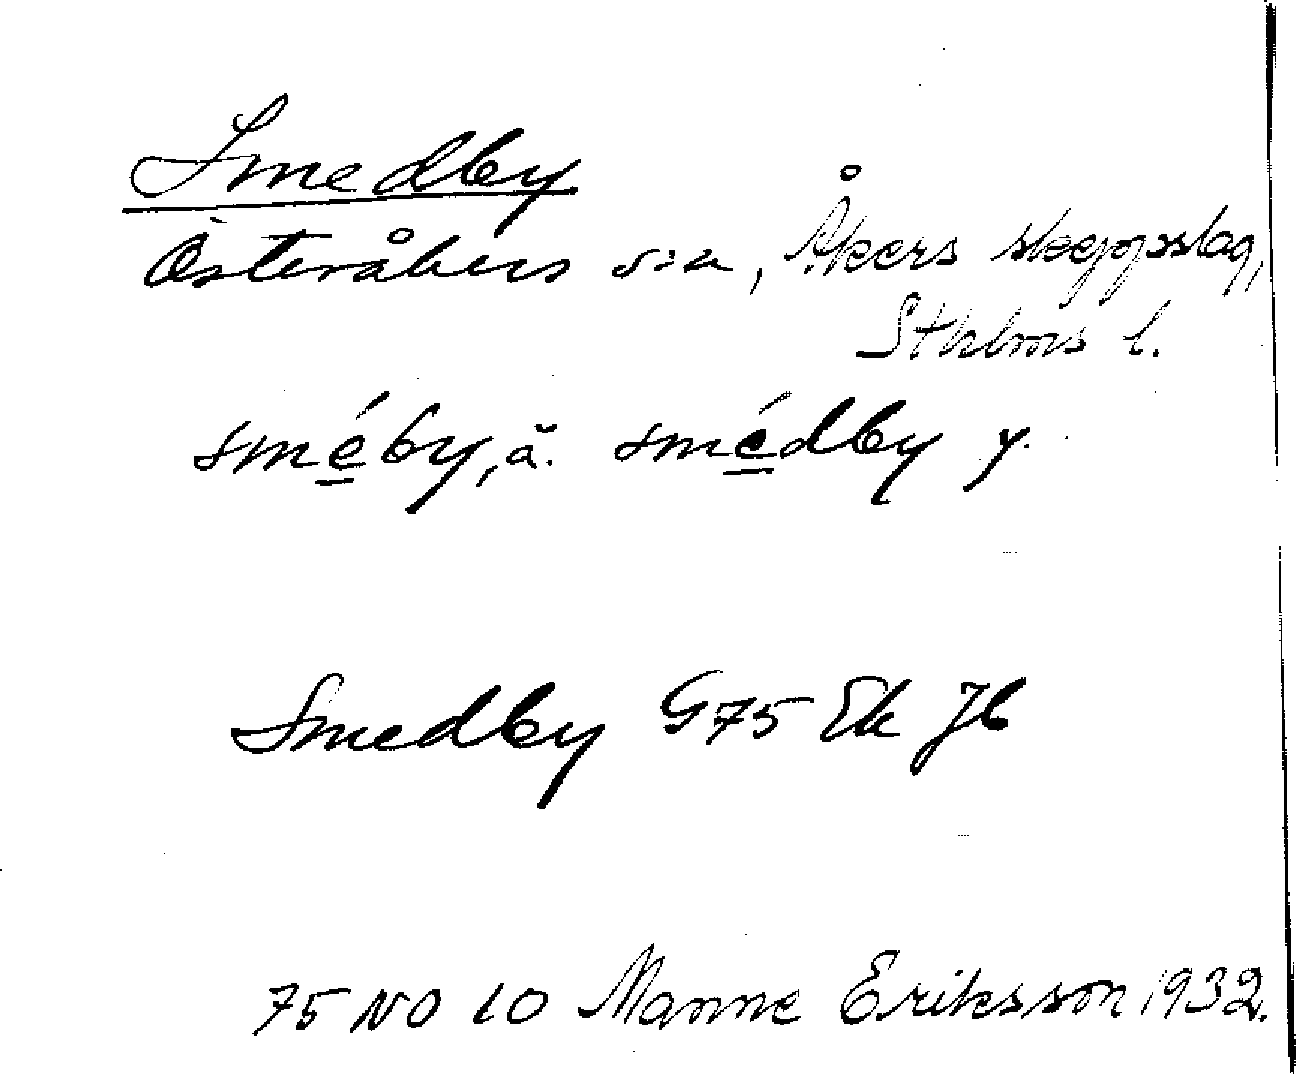 Smedby
Österåkers sn, Åkers skeppslag,
Sthlms l.
smé̱by, ä. smé̱dby y.
Smedby G75 Ek Jb
75 NO LO Manne Eriksson 1932.